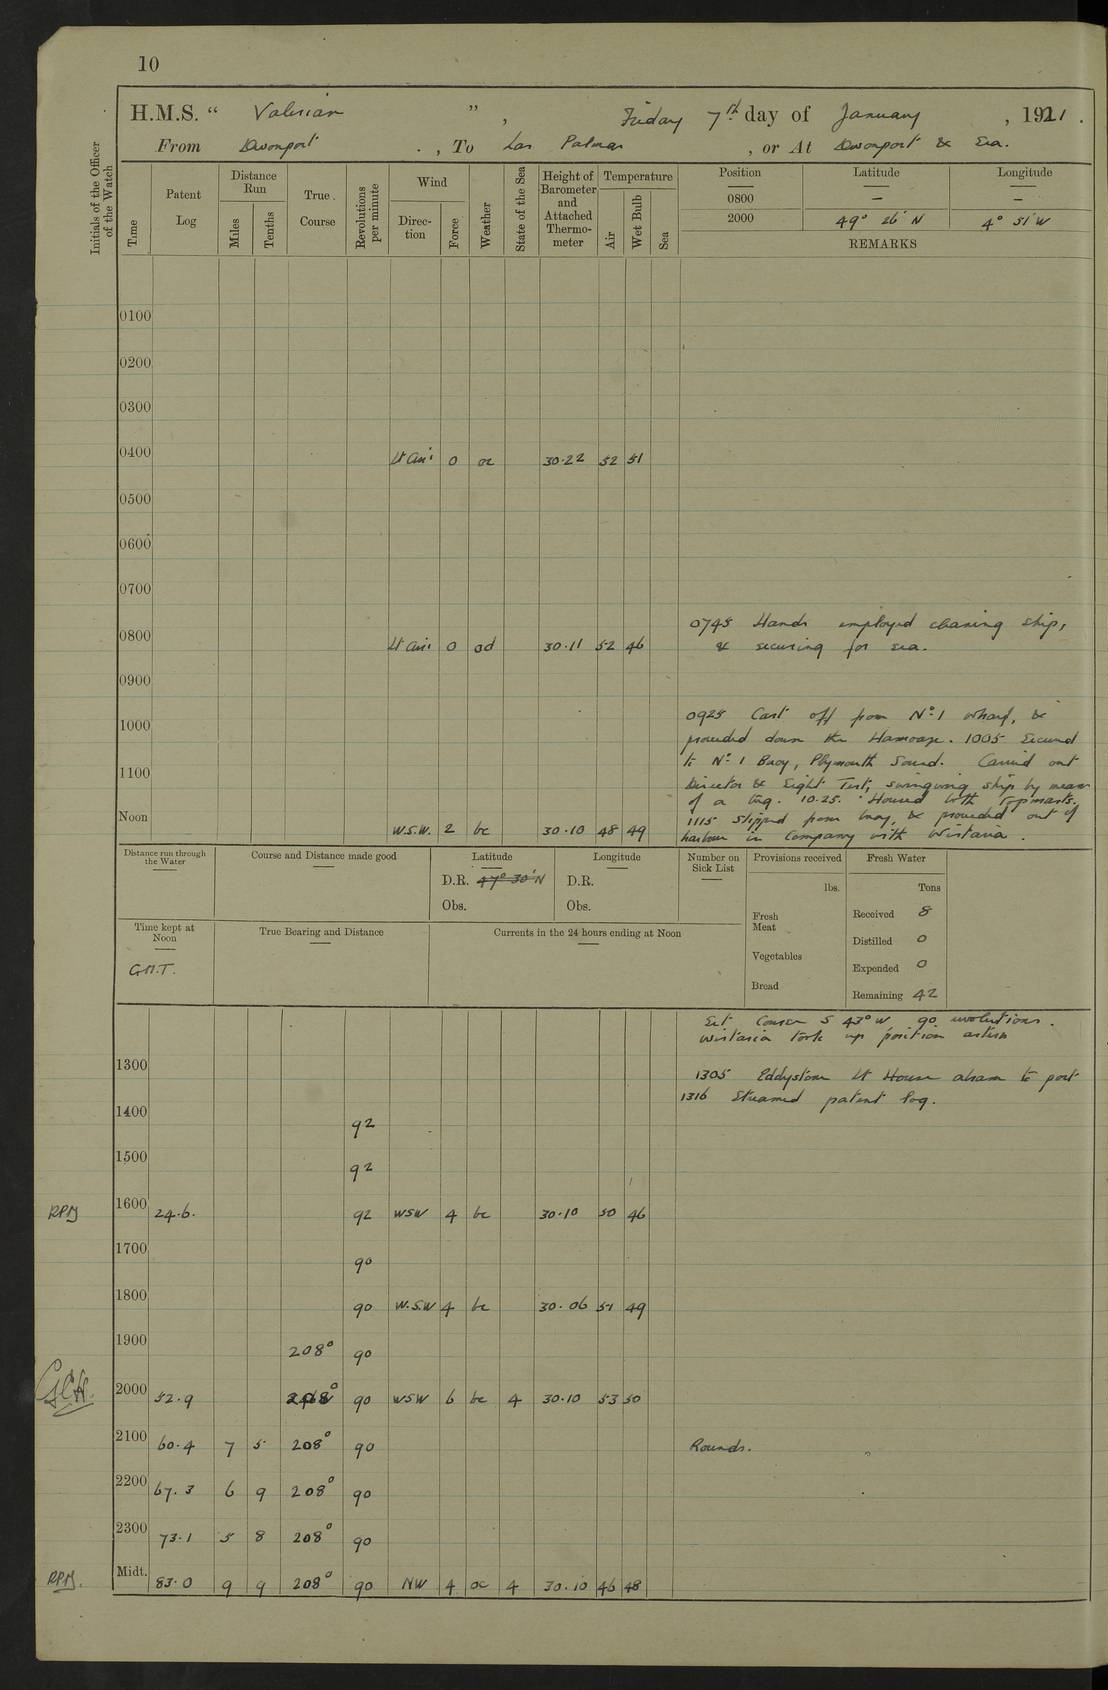 10
H.M.S. " Valerian " , Friday 7th day of January , 1921 .
From Devonport . , To Las Palmas , or At Devonport & Sea.
Initials of the Officer of the Watch
Time
Patent Log
Distance Run
Miles
Tenths
True Course
Revolutions per minute
Wind
Direction
Force
Weather
State of the Sea
Height of Barometer and Attached Thermometer
Temperature
Air
Wet Bulb
Sea
Position Latitude Longitude
0800 — —
2000 49° 26' N 4° 51' W
REMARKS
0100
0200
0300
0400 Lt Airs 0 oc 30.22 52 51
0500
0600
0700
0745 Hands employed cleaning ship,
& securing for sea.
0800 Lt Airs 0 od 30.11 52 46
0900
0925 Cast off from No. 1 wharf, &
1000
proceeded down the Hamoaze. 1005 Secured
to No. 1 Buoy, Plymouth Sound. Carried out
1100
Director & Sight Test, swinging ship by means
of a tug. 10.25. Housed both Topmasts.
1115 Slipped from buoy, & proceeded out of
harbour in Company with Wistaria.
Noon W.S.W. 2 bc 30.10 48 49
Distance run through the Water
Course and Distance made good
Latitude
D.R. 47° 30' N
Obs.
Longitude
D.R.
Obs.
Number on Sick List
Provisions received
lbs.
Fresh Meat
Vegetables
Bread
Fresh Water
Tons
Received 8
Distilled 0
Expended 0
Remaining 42
Time kept at Noon
G.M.T.
True Bearing and Distance
Currents in the 24 hours ending at Noon
Set Course S 43° W 90 revolutions.
Wistaria took up position astern
1300
1305 Eddystone Lt House abeam to port
1316 Streamed patent log.
1400 92
1500 92
RPM 1600 24.6. 92 WSW 4 bc 30.10 50 46
1700 90
1800 90 W.S.W 4 bc 30.06 51 49
1900 208° 90
2000 52.9 208° 90 WSW 6 bc 4 30.10 53 50
2100 60.4 7 5 208° 90 Rounds.
2200 67.3 6 9 208° 90
2300 73.1 5 8 208° 90
RPM. Midt. 83.0 9 9 208° 90 NW 4 oc 4 30.10 46 48